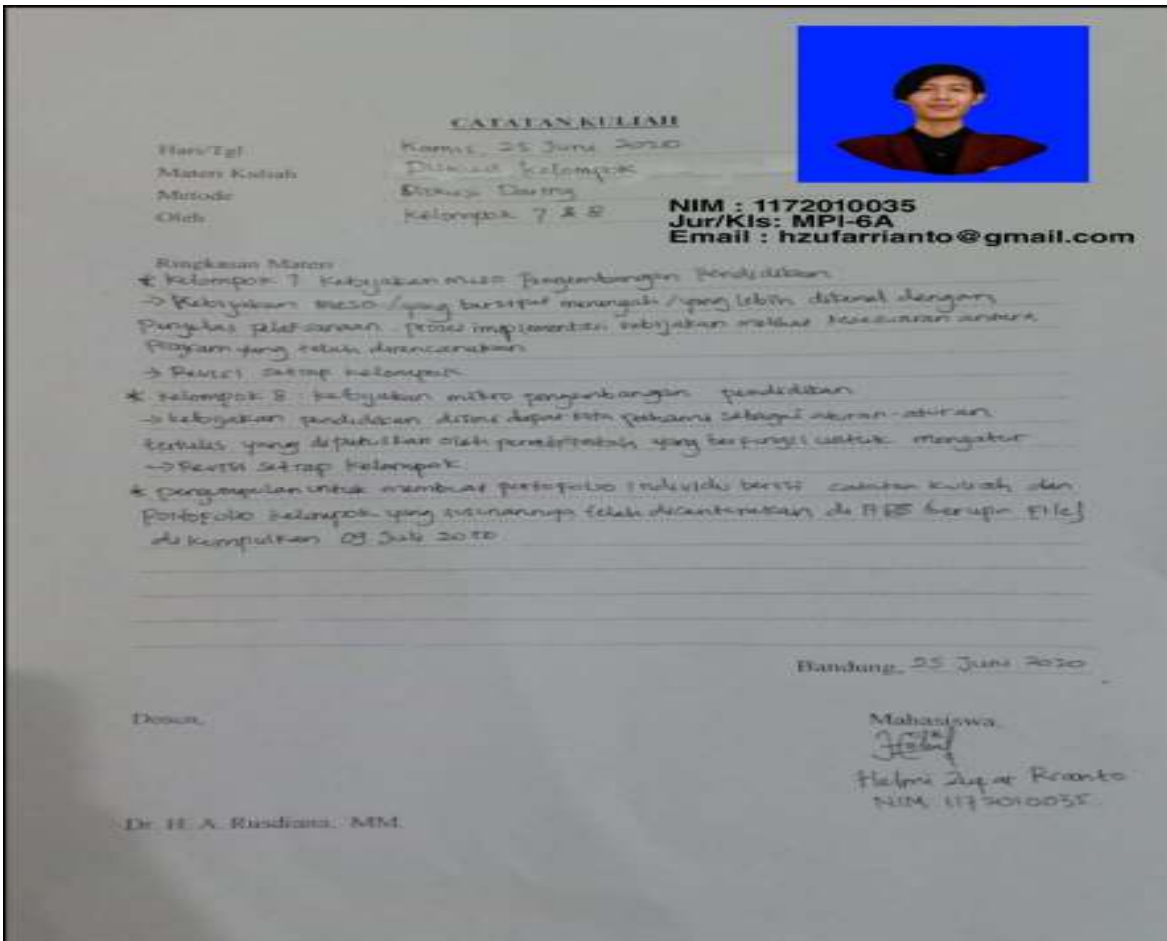 CATATAN KULIAH
Hari/Tgl Kamis, 25 Juni 2020
Materi Kuliah Diskusi kelompok
Metode Diskusi Daring
Oleh Kelompok 7 & 8
NIM : 1172010035
Jur/Kls: MPI-6A
Email : hzufarrianto@gmail.com
Ringkasan Materi
* Kelompok 7 Kebijakan meso Pengembangan Pendidikan
-> Kebijakan meso / yang bersifat menengah / yang lebih dikenal dengan
Penjelas pelaksanaan. proses implementasi kebijakan melihat kesesuaian antara
Program yang telah direncanakan
-> Revisi setiap kelompok
* kelompok 8 : kebijakan mikro pengembangan pendidikan
-> kebijakan pendidikan disini dapat kita pahami sebagai aturan-aturan
tertulis yang diputuskan oleh pemerintah yang berfungsi untuk mengatur
-> Revisi setiap kelompok
* pengumpulan untuk membuat portofolio individu berisi catatan kuliah dan
Portofolio kelompok yang susunannya telah dicantumkan di berupa File
di kumpulkan 09 Juli 2020
Bandung, 25 Juni 2020
Dosen, Mahasiswa,
Helmi Zufar Rianto
NIM 1172010035
Dr. H. A. Rusdiana, MM.